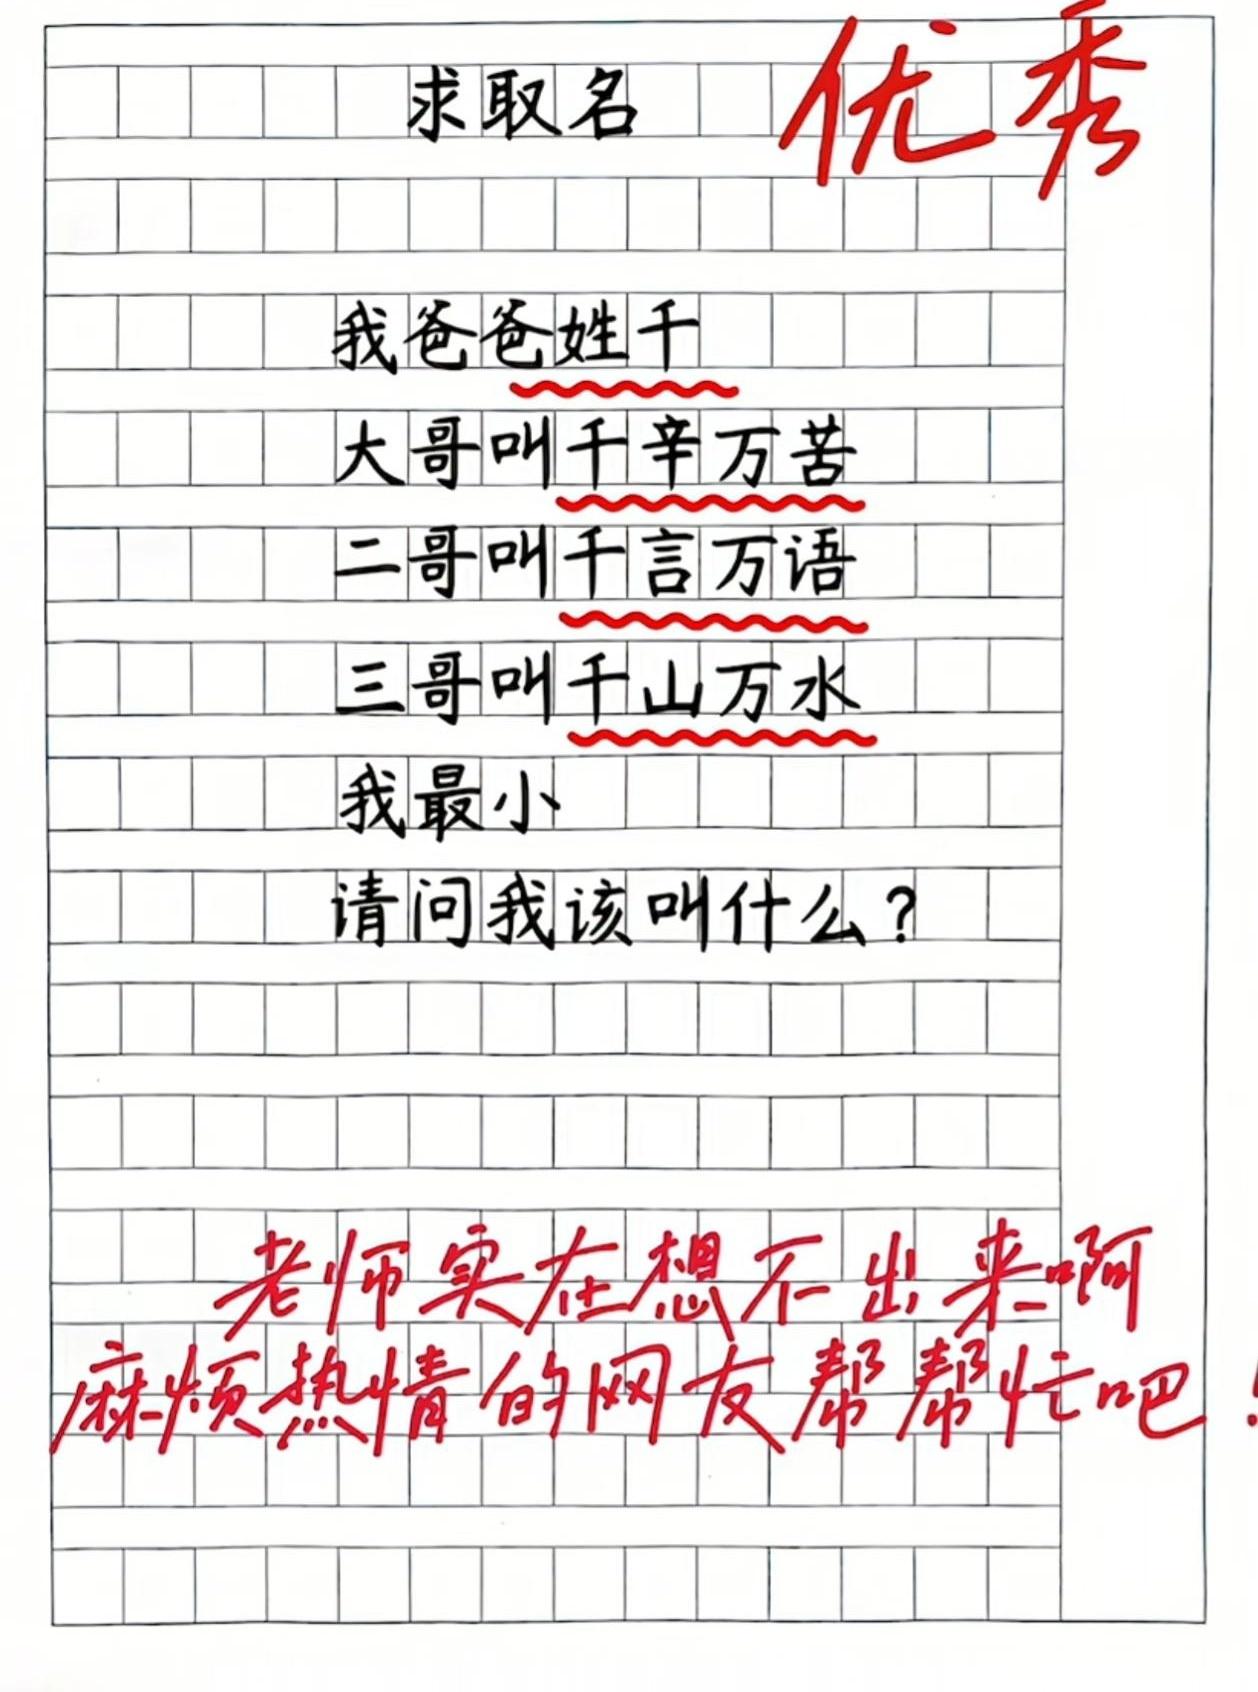 求取名
优秀
我爸爸姓千
大哥叫千辛万苦
二哥叫千言万语
三哥叫千山万水
我最小
请问我该叫什么？
老师实在想不出来啊
麻烦热情的网友帮帮忙吧！